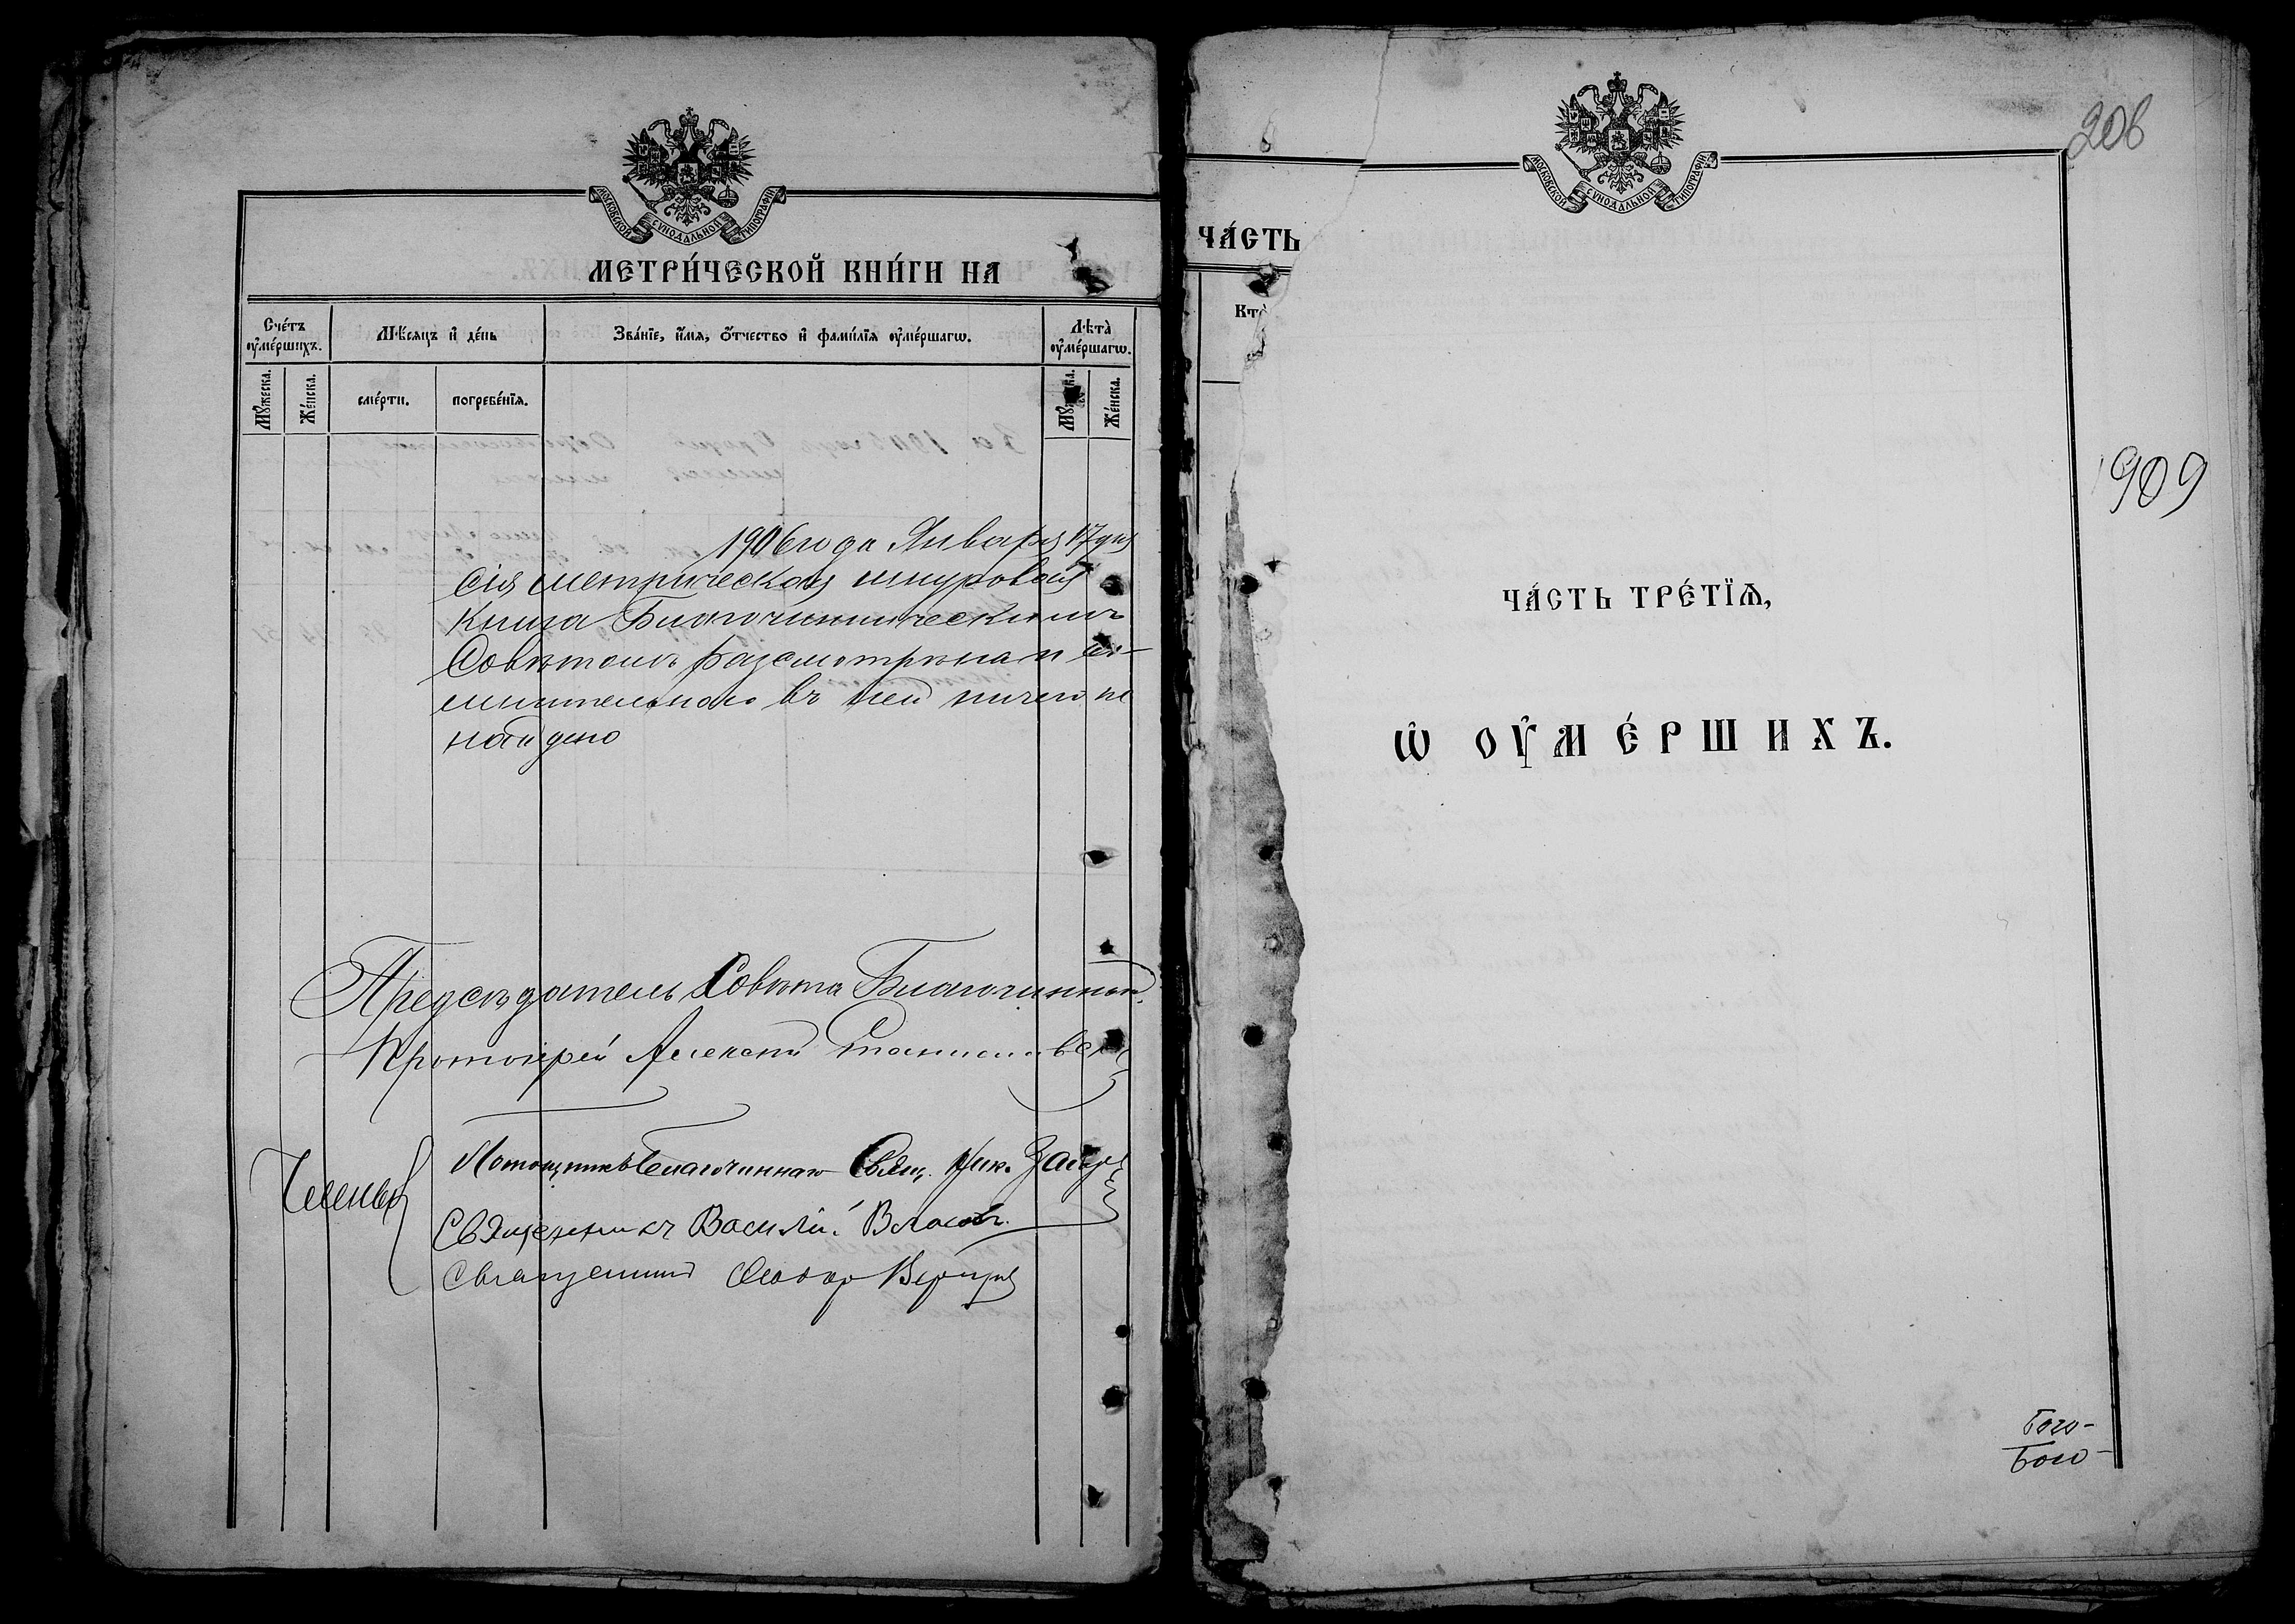 МОСКОВСКОЙ СѴНОДАЛЬНОЙ ТИПОГРАФІИ
МЕТРИ́ЧЕСКОЙ КНИ́ГИ НА
Сче́тъ ᲂу҆ме́ршихъ.
Мѣ́сяцъ и҆ де́нь
Зва́нїе, и҆́мя, ѻ҆́тчество и҆ фами́лїя ᲂу҆ме́ршагѡ.
Лѣта̀ ᲂу҆ме́ршагѡ.
Мꙋ́жеска.
Же́нска.
сме́рти.
погребе́нїя.
Же́нска.
1906 года Января 17 дня
сія метрическая шнуровая
книга Благочинническимъ
Совѣтомъ разсмотрѣна и со-
мнительнаго въ ней ничего не
найдено
Предсѣдатель Совѣта Благочинный
Протоіерей Алексій
Члены
Помощникъ Благочиннаго Свящ. Ник.
Священникъ Василій Власовъ.
Священникъ Ѳеодоръ
МОСКОВСКОЙ СѴНОДАЛЬНОЙ ТИПОГРАФІИ
206
ЧА́СТЬ
Кто̀
909
ЧА́СТЬ ТРЕ́ТЇѦ,
Ѡ҆ ОУ҆МЕ́РШИХЪ.
Бого-
Бого-